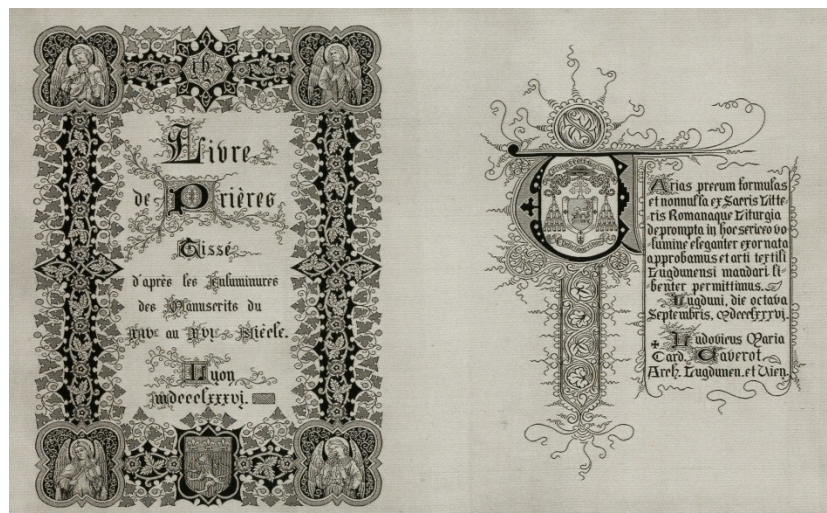 ihs
Livre
de Prières
Tissé
d'après les Enluminures
des Manuscrits du
XIVe au XVIe Siècle.
Lyon
mdccclxxxvi.
VArias precum formulas
et nonnulla ex Sacris Litte-
ris Romanaque Liturgia
deprompta in hoc sericeo vo-
lumine eleganter exornata
approbamus et arti textili
Lugdunensi mandari li-
benter permittimus.
Lugduni, die octava
Septembris, Mdccclxxxvi.
Ludovicus Maria
Card. Caverot
Arch. Lugdunen. et Vien.